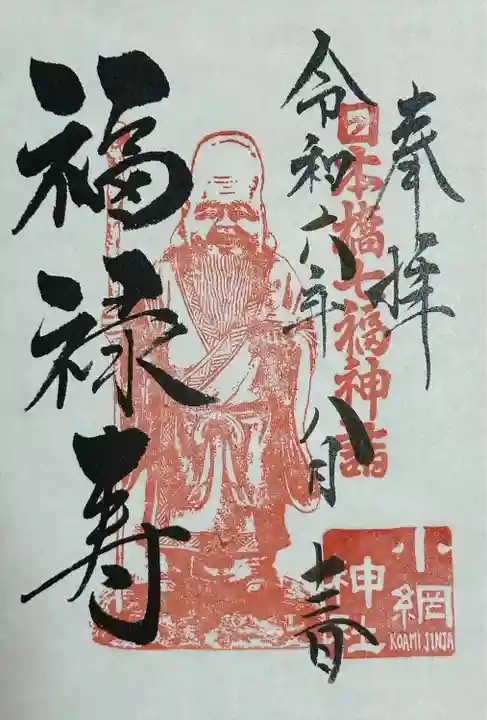 奉拝
日本橋七福神詣
令和六年八月十三日
福禄寿
小網
神社
KOAMI JINJA